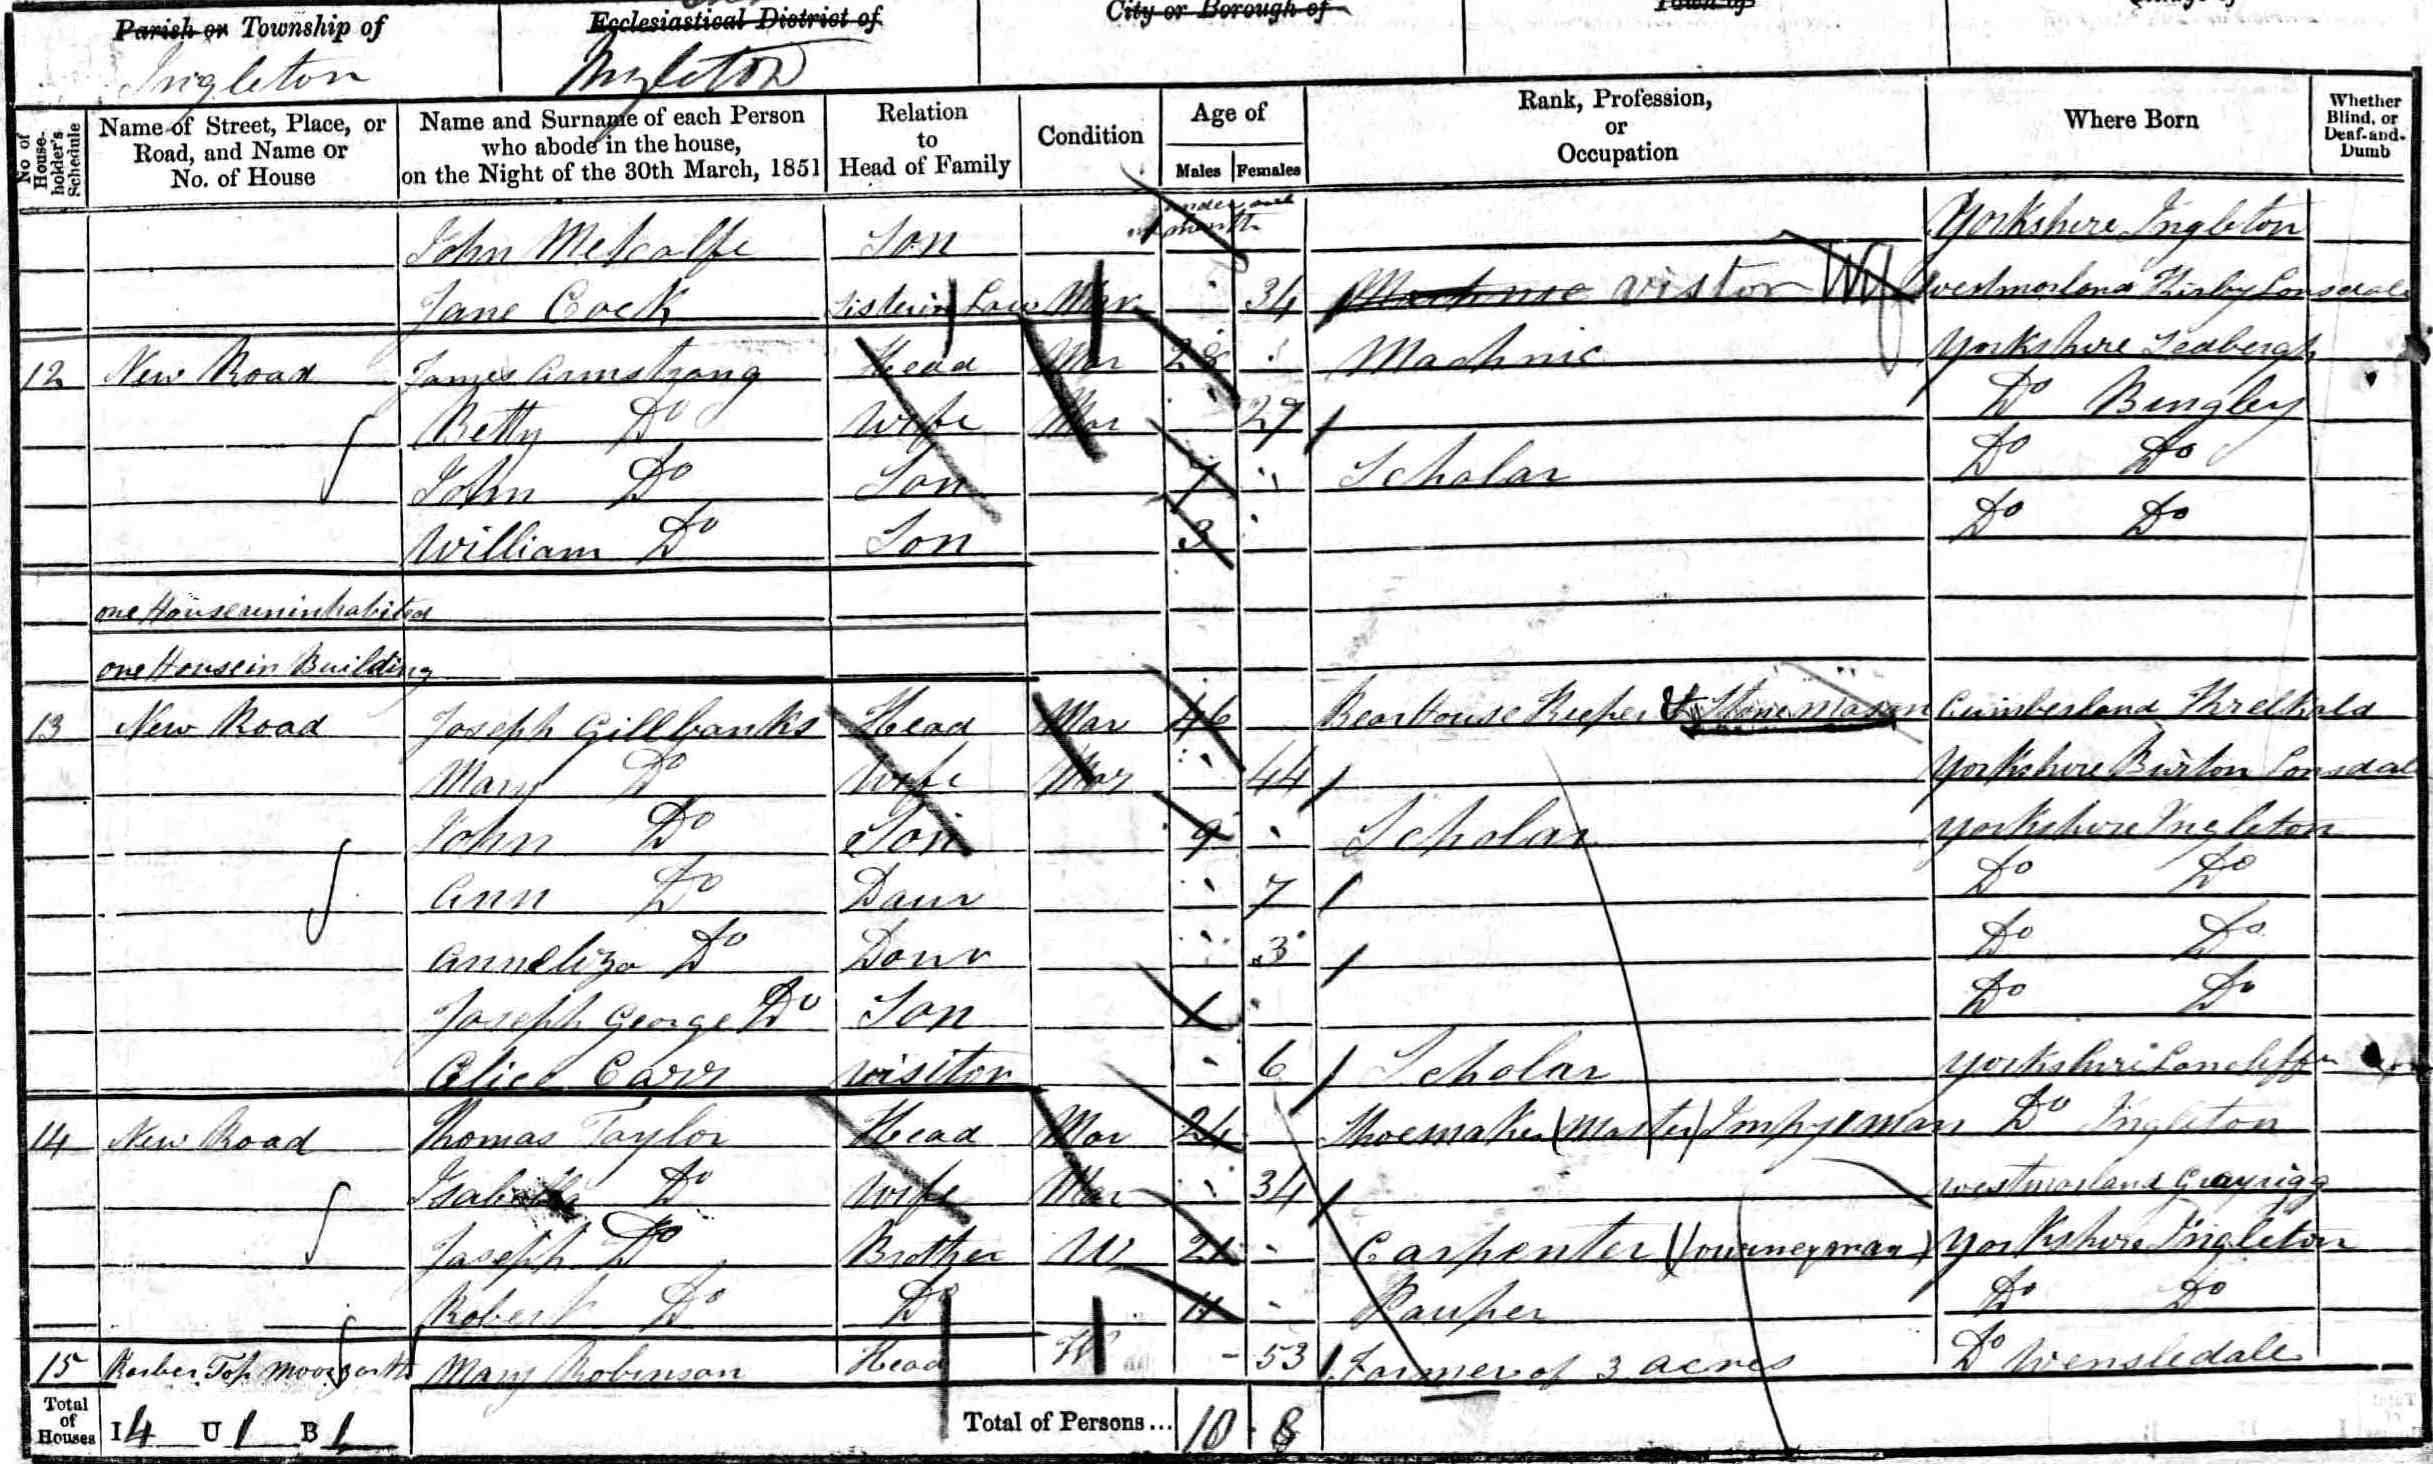 Parish or Township of
Ecclesiastical District of
City or Borough of
Town of
Ingleton
Ingleton
No of House-holder's Schedule
Name of Street, Place, or Road, and Name or No. of House
Name and Surname of each Person who abode in the house, on the Night of the 30th March, 1851
Relation to Head of Family
Condition
Age of
Males Females
Rank, Profession, or Occupation
Where Born
Whether Blind, or Deaf-and-Dumb
John Metcalfe Son under one month Yorkshire Ingleton
Jane Cock Sister in Law Mar 34 Machnic vistor Westmorland Kirby Lonsdale
12 New Road James Armstrong Head Mar 28 Machnic Yorkshire Sedbergh
Betty Do Wife Mar 29 Do Bingley
John Do Son 7 Scholar Do Do
William Do Son 3 Do Do
one House uninhabited
one House in Building
13 New Road Joseph Gillbanks Head Mar 46 Bear House Keeper & Stone mason Cumberland Threlkald
Mary Do Wife Mar 44 Yorkshire Burton Lonsdale
John Do Son 9 Scholar Yorkshire Ingleton
Ann Do Daur 7 Do Do
Anneliza Do Daur 3 Do Do
Joseph George Do Son 1 Do Do
Alice Carr visitor 6 Scholar Yorkshire
14 New Road Thomas Taylor Head Mar 24 Shoemaker (Master) 1 man Do Ingleton
Isabella Do Wife Mar 34 Westmorland Grayrigg
Joseph Do Brother W 21 Carpenter (Journeyman) Yorkshire Ingleton
Robert Do Do 11 Pauper Do Do
15 Top Mary Robinson Head W 53 Farmer of 3 acres Do Wensledale
Total of Houses I 4 U 1 B 1
Total of Persons... 10 8